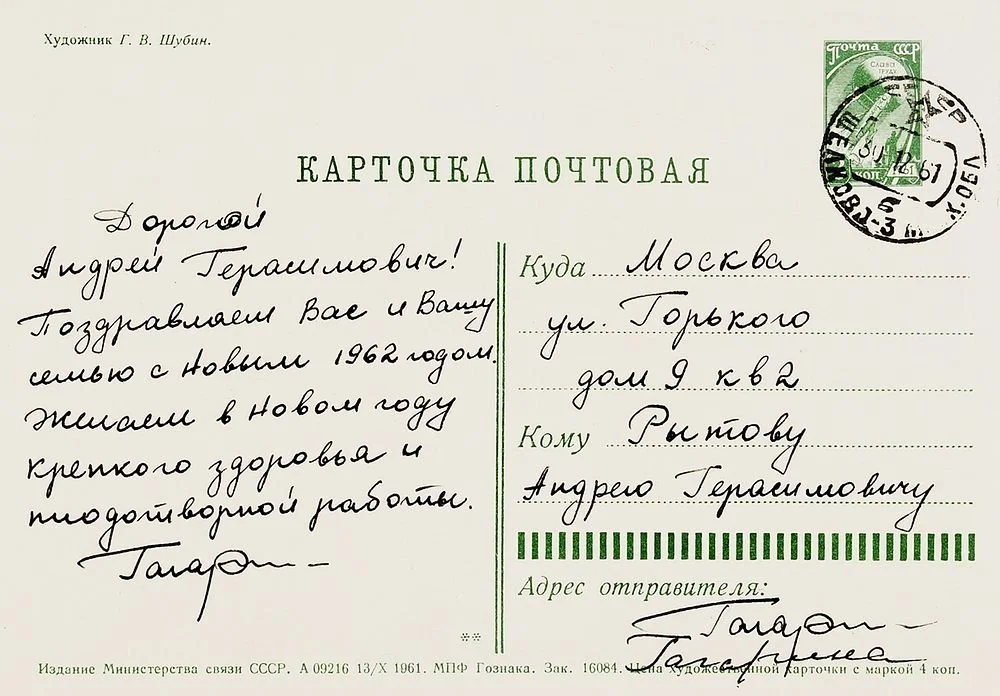 Художник Г. В. Шубин.
Почта СССР
СЛАВА
ТРУДУ
КОП.
ЩЕЛКОВО-3 М
30.12.61
б
КАРТОЧКА ПОЧТОВАЯ
Дорогой
Андрей Герасимович!
Поздравляем Вас и Вашу
семью с Новым 1962 годом.
Желаем в Новом году
крепкого здоровья и
плодотворной работы.
Гагарин
Куда Москва
ул. Горького
дом 9 кв 2
Кому Рытову
Андрею Герасимовичу
Адрес отправителя:
Гагарин
Гагарина
Издание Министерства связи СССР. А 09216 13/X 1961. МПФ Гознака. Зак. 16084. Цена художественной карточки с маркой 4 коп.